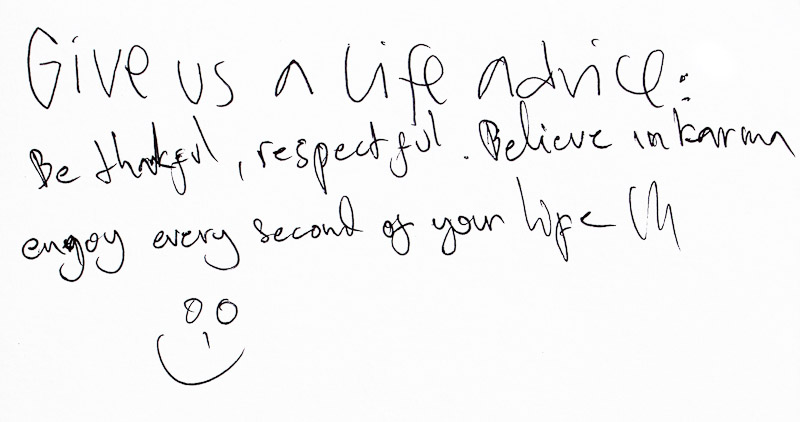 Give us a life advice:
Be thankful, respectful. Believe in karma
enjoy every second of your life